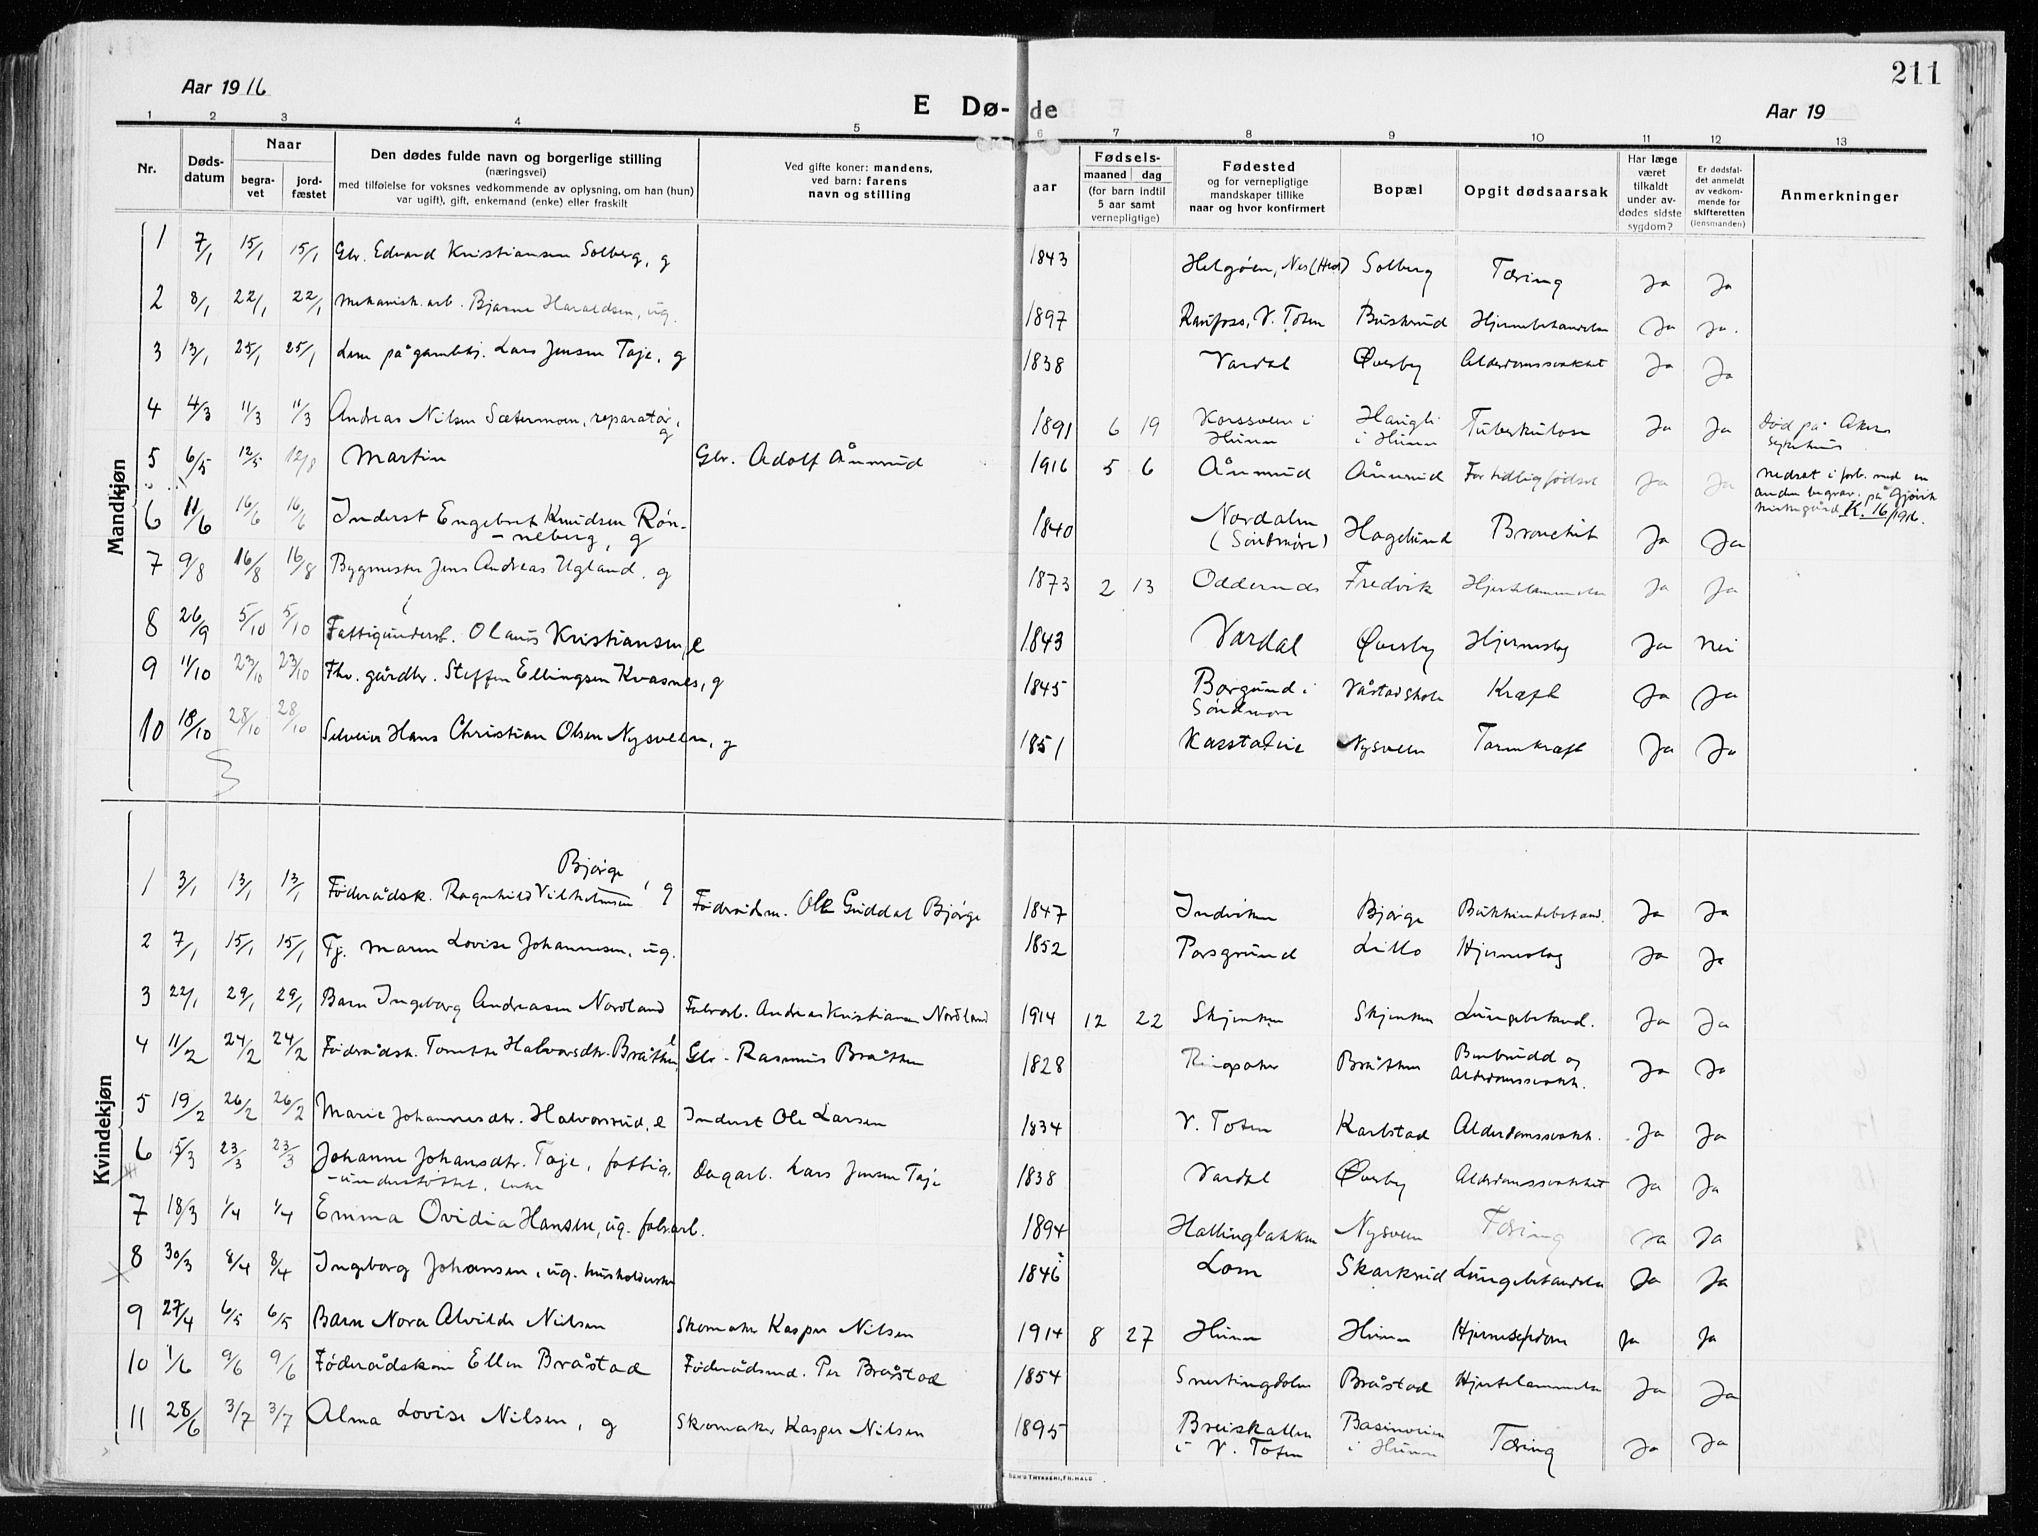 211
Aar 1916
E Dø-de
Aar 19
1 2 3 4 5 6 7 8 9 10 11 12 13
Nr.
Døds-
datum
Naar
begra-
vet
jord-
fæstet
Den dødes fulde navn og borgerlige stilling
(næringsvei)
med tilføielse for voksnes vedkommende av oplysning, om han (hun)
var ugift), gift, enkemand (enke) eller fraskilt
Ved gifte koner: mandens,
ved barn: farens
navn og stilling
aar
Fødsels-
maaned dag
(for barn indtil
5 aar samt
vernepligtige)
Fødested
og for vernepligtige
mandskaper tillike
naar og hvor konfirmert
Bopæl
Opgit dødsaarsak
Har læge
været
tilkaldt
under av-
dødes sidste
sygdom?
Er dødsfal-
det anmeldt
av vedkom-
mende for
skifteretten
(lensmanden)
Anmerkninger
Mandkjøn
1 7/1 15/1 15/1 Gbr. Edvard Kristiansen Solberg, g 1843 Helgøen, Nes (Hed) Solberg Tæring Ja Ja
2 8/1 22/1 22/1 Mekanisk. arb. Bjarne Haraldsen, ug. 1897 Raufoss, V. Toten Buskrud Ja Ja.
3 13/1 25/1 25/1 Lars Jensen Taje, g 1838 Vardal Øverby Alderdomssvakhet Ja Ja
4 4/3 11/3 11/3 Andreas Nilsen Sætermoen, reparatør, g 1891 6 19 Korsveen i Hunn Haugli i Hunn Tuberkulose Ja Ja Død på Akers sykehus
5 6/5 12/5 12/8 Martin Gbr. Adolf Ånnrud 1916 5 6 Ånnrud Ånnrud For tidlig fødsel Ja Ja nedsat i forb. med en anden begrav. på Gjøvik kirkegård K. 16/1916.
6 11/6 16/6 16/6 Inderst Engebret Knudsen Røn-
neberg, g 1840 Nordalen (Søndmøre) Hagelund Bronchit Ja Ja
7 9/8 16/8 16/8 Bygmester Jens Andreas Ugland, g 1873 2 13 Oddernes Fredvik Hjertelammelse Ja Ja
8 26/9 5/10 5/10 Fattigunderst. Olaus Kristiansen, e 1843 Vardal Øverby Hjerneslag Ja Nei
9 11/10 23/10 23/10 Fhv. gårdbr. Steffen Ellingsen Kvasnes, g 1845 Borgund i Søndmøre Våstadskole Kræft Ja Ja
10 18/10 28/10 28/10 Selveier Hans Christian Olsen Nysveen, g 1851 Kasstadeie Nysveen Tarmkræft Ja Ja
Kvindekjøn
1 3/1 13/1 13/1 Føderådsk. Ragnhild Vilhelmsen Bjørge, g Føderådsm. Ole Guddal Bjørge 1847 Indviken Bjørge Bukhindebetænd. Ja Ja
2 7/1 15/1 15/1 Tj. Maren Lovise Johannesen, ug. 1852 Porsgrund Lillo Hjerneslag Ja Ja
3 22/1 29/1 29/1 Barn Ingeborg Andreasen Nordland Fabrarb. Andreas Kristiansen Nordland 1914 12 22 Skjenken Skjenken Lungebetænd. Ja Ja
4 11/2 24/2 24/2 Føderådsk. Halvorsdtr. Bråthen, e Gbr. Rasmus Bråthen 1828 Ringsaker Bråthen Benbrudd og Alderdomssvakh. Ja Ja
5 19/2 26/2 26/2 Marie Johannesdtr. Halvorsrud, e Inderst Ole Larsen 1834 V. Toten Karlstad Alderdomssvakh. Ja Ja
6 15/3 23/3 23/3 Johanne Johansdtr. Taje, fattig-
understøttet, enke Dagarb. Lars Jensen Taje 1838 Vardal Øverby Alderdomssvakhet Ja Ja
7 18/3 1/4 1/4 Emma Ovidia Hansen, ug. fabrarb. 1894 Hallingbakken Nysveen Tæring Ja Ja
8 30/3 8/4 8/4 Ingeborg Johansen, ug. husholderske 1846 ? Lom Skarkrud Lungebetændelse Ja Ja
9 27/4 6/5 6/5 Barn Nora Alvilde Nilsen Skomaker Kasper Nilsen 1914 8 27 Hunn Hunn Hjernesykdom Ja Ja
10 1/6 9/6 9/6 Føderådskone Ellen Bråstad Føderådsmd. Per Bråstad 1854 Snertingdalen Bråstad Hjertelammelse Ja Ja
11 28/6 3/7 3/7 Alma Lovise Nilsen, g Skomaker Kasper Nilsen 1895 Breiskallen i V. Toten i Hunn Tæring Ja Ja